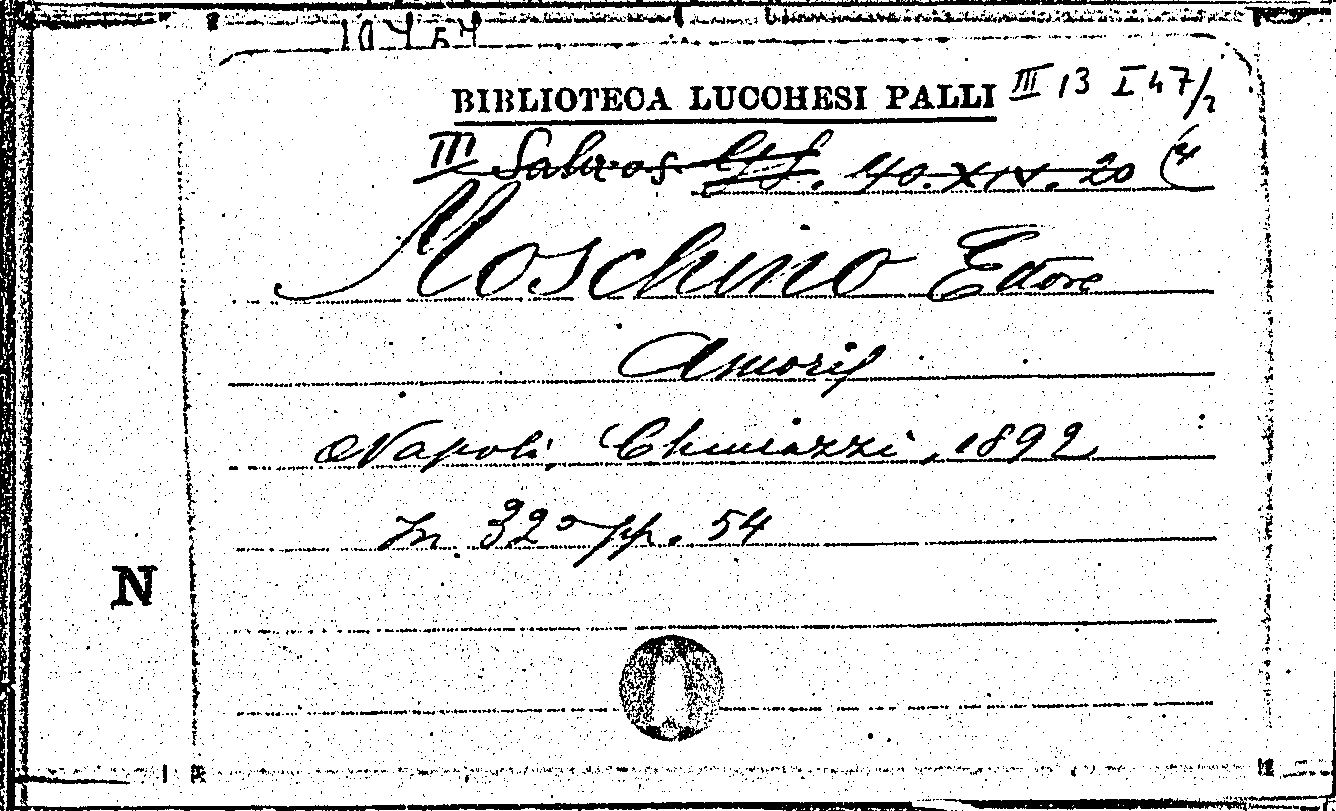 BIBLIOTECA LUCCHESI PALLI III 13 I 47/2
III 40. XIX. 20 (4
Moschino Ettore
Amoris
Napoli, Chiurazzi, 1892
In 32° pp. 54
N